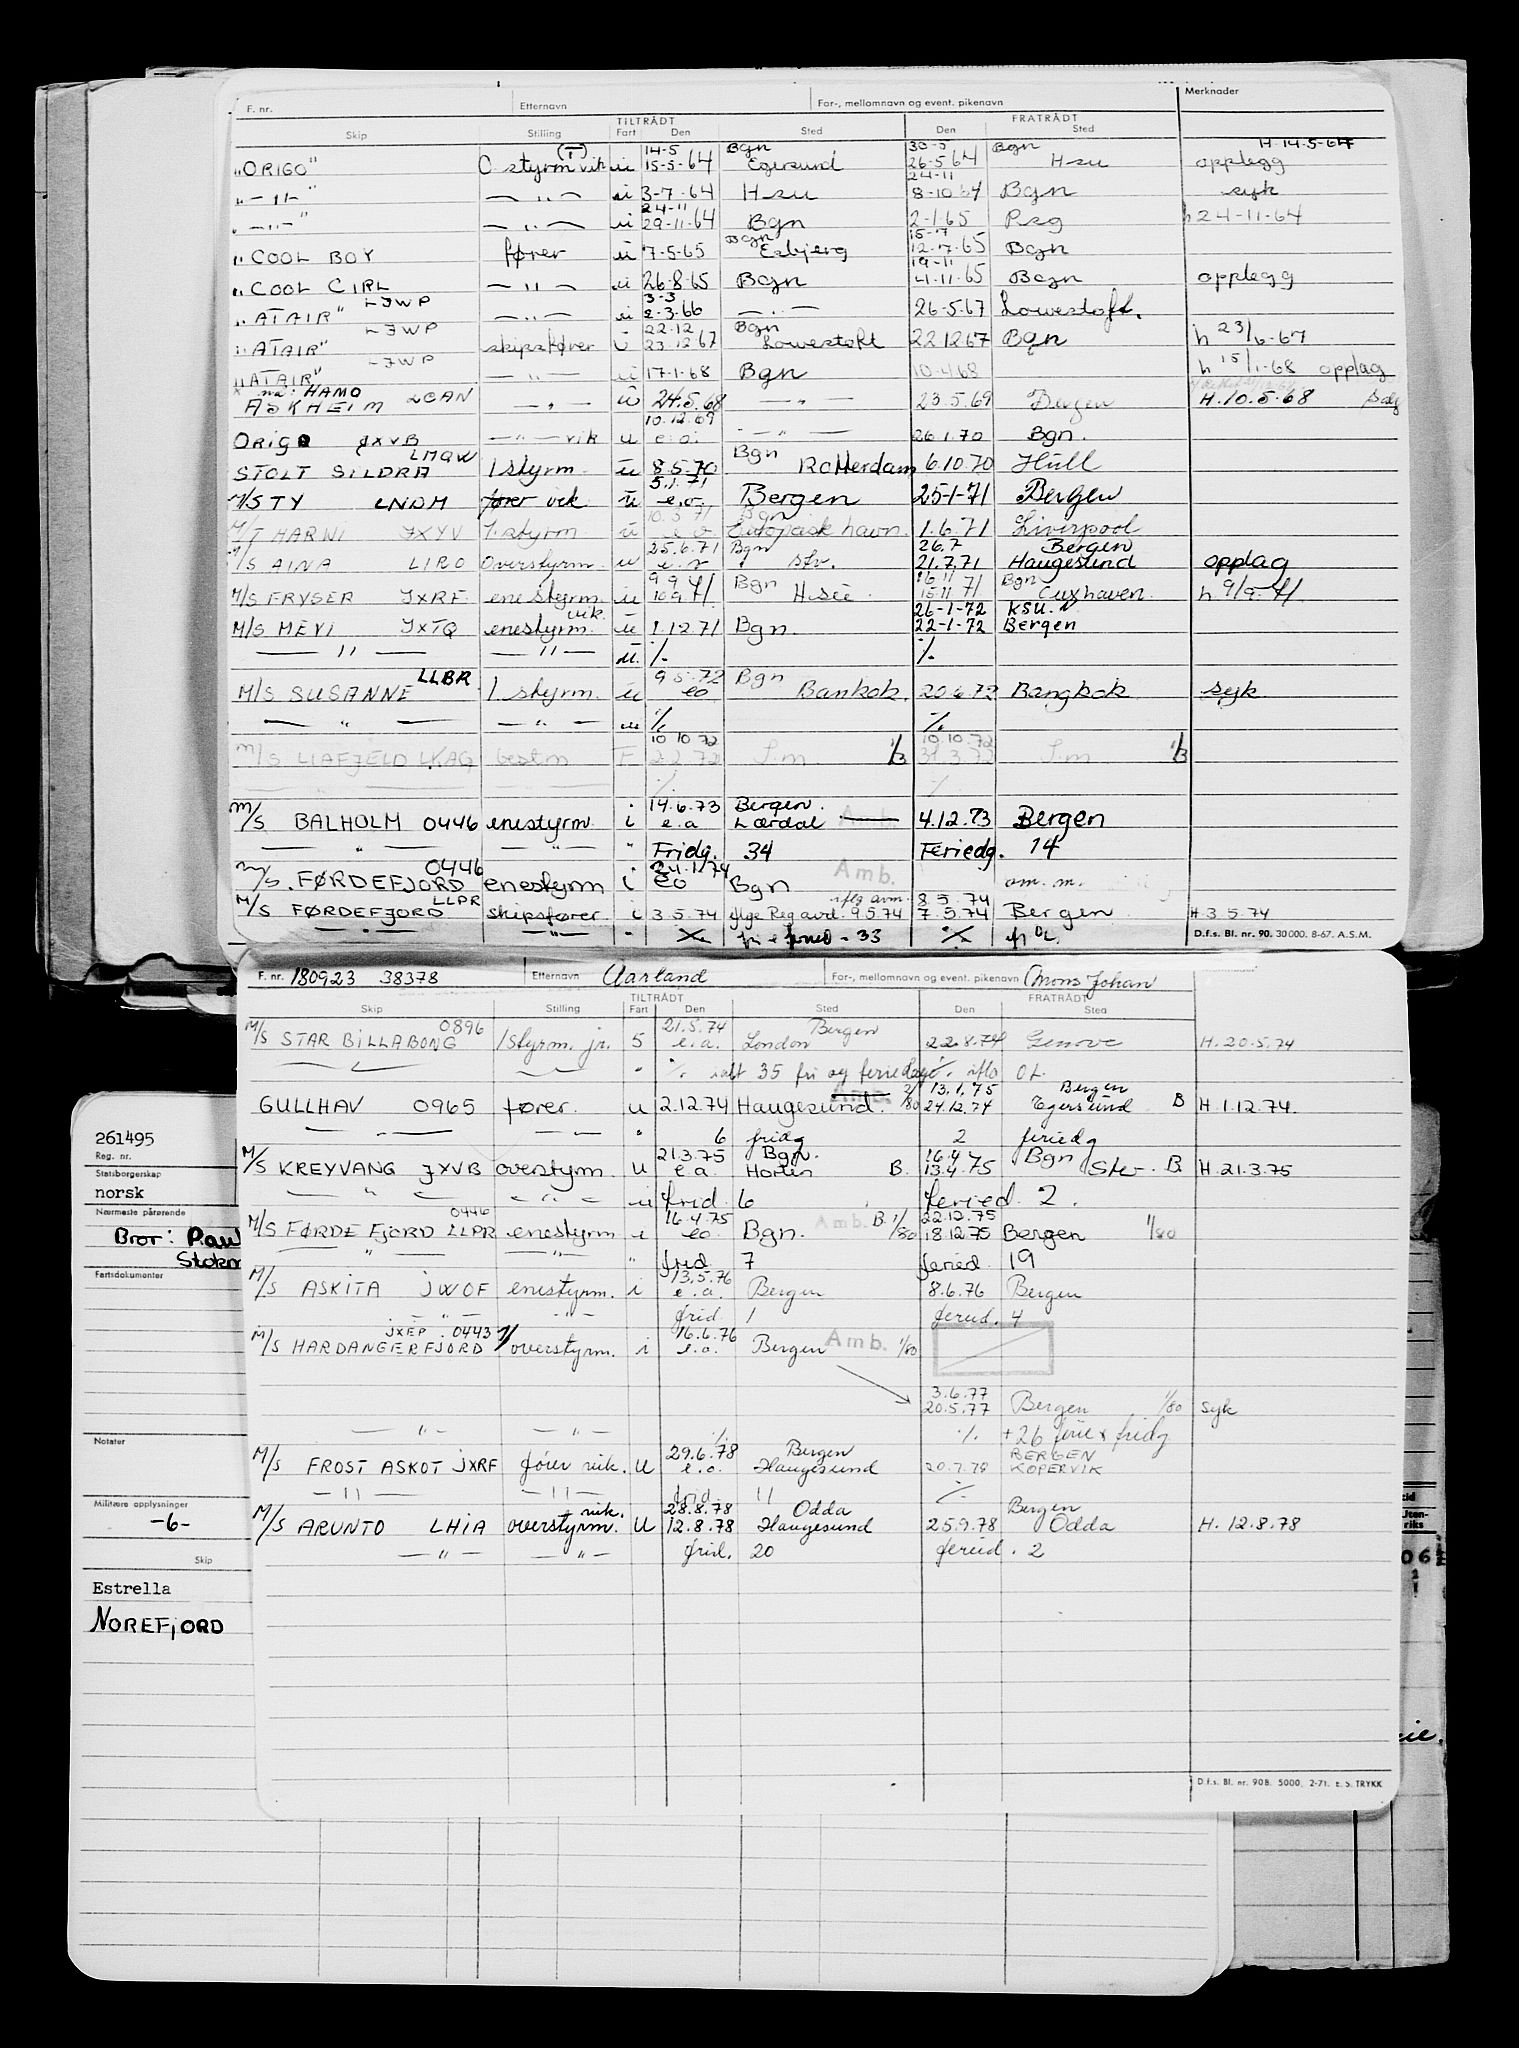 F. nr. Etternavn For-, mellomnavn og event. pikenavn Merknader
TILTRÅDT FRATRÅDT
Skip Stilling Fart Den Sted Den Sted
(T) 14-5 Bgn 30-5 Bgn H. 14.5-64
"ORIGO" O styrm vik u 15-5-64 Egersund 26-5-64 Hsu opplegg
24-11
" - " - " — " — u 3-7-64 Hsu 8-10-64 Bgn syk
24-11
" - " - " — " — u 29-11-64 Bgn 2-1-65 h 24-11-64
Bgn 15-7
" COOL BOY fører u 7-5-65 Esbjerg 12-7-65 Bgn
19-11
" COOL GIRL — " — u 26-8-65 Bgn 4-11-65 Bgn opplegg
LJWP 3-3
"ATAIR" — " — u 2-3-66 — " — 26-5-67 Lowestoft.
LJWP 22.12 Bgn
"ATAIR" skipsfører u 23.12.67 Lowestoft 22.12.67 Bgn h 23/6-67
LJWP
"ATAIR" — " — u 17-1-68 Bgn 10.4.68 h 15/1-68 opplag
nå: HAMO
ASKHEIM LCAN — " — u 24.5.68 — " — 23.5.69 Bergen H. 10.5.68
10.12.69
ORIGO JXVB — " — vik u e.o. — " — 26.1.70 Bgn.
LMQW Bgn
STOLT SILDRA 1 styrm. u 8.5.70 Rotterdam 6.10.70 Hull
5.1.71
M/S TY LNDM fører vik u e.o. Bergen 25-1-71 Bergen
10.3.71 Bgn
M/T HARWI JXYV 1. styrm u e o Europeisk havn. 1.6.71 Liverpool
25.6.71 Bgn 26.7 Bergen
M/S AINA LIRO Overstyrm. u stv. 21.7.71 Haugesund opplag
9.9.71 Bgn 16.11 Bgn
M/S FRYSER JXRF enestyrm. u 10.9.71 15.11.71 Cuxhaven. h 9/9-71
vik. 26-1-72 KSU.
M/S MEVI JXTQ enestyrm. u 1.12.71 Bgn. 22-1-72 Bergen
— " — — " — u. %. %.
LLBR 9.5.72 Bgn
M/S SUSANNE 1 styrm. u eo Bankok. 20.6.72 Bangkok syk
— " — — " — u %. %.
10.10.72 10.10.72
M/S LIAFJELD LKAG bestm F 2.2.72 S.m. 1/B 31.3.72 S.m 1/B
14.6.73 Bergen.
M/S BALHOLM 0446 enestyrm. i e.a Lærdal Amb. 4.12.73 Bergen
— " — — " — " Fridg. 34 Feriedg. 14
0446 24.1.74
M/S. FØRDEFJORD enestyrm i eo Bgn Amb. om. m.
LLPR iflg avm. 8.5.74
M/S FØRDEFJORD skipsfører. i 3.5.74 iflge Reg avd. 9.5.74 7.5.74 Bergen H 3.5.74
— " — — " — " %. fri e feried - 33 %
D.f.s. Bl. nr. 90. 30000. 8-67. A.S.M.
F. nr. 180923 38378 Etternavn Aarland For-, mellomnavn og event. pikenavn Mons Johan
TILTRÅDT FRATRÅDT
Skip Stilling Fart Den Sted Den Sted
0896 21.5.74 Bergen
M/S STAR BILLABONG 1 styrm. jr. S e.a. London 22.8.74 Genova H. 20.5.74
— " — — " — " %. ialt 35 fri og feriedage %. iflg OL.
Amb. 13.1.75 Bergen
GULLHAV 0965 fører. u 2.12.74 Haugesund. 1/80 24.12.74 Egersund B H. 1.12.74.
— " — — " — " 6 fridg 2 feriedg
21.3.75 Bgn. 16.4.75 Bgn
M/S KREYVANG JXVB overstyrm. u e.a. Horten B. 13.4.75 B H. 21.3.75
— " — — " — u frid. 6 feried. 2.
0446 16.4.75 22.12.75
M/S FØRDE FJORD LLPR enestyrm i eo. Bgn. Amb. B. 1/80 18.12.75 Bergen 1/80
— " — — " — " frid 7 feried. 19
13.5.76
M/S ASKITA JWOF enestyrm. i e.a. Bergen 8.6.76 Bergen
— " — — " — frid 1 feried. 4
JXEP 0443 16.6.76
M/S HARDANGERFJORD overstyrm. i e.o. Bergen Amb. 1/80
3.6.77
20.5.77 Bergen 1/80 syk
— " — — " — %. %. +26 ferie & fridg
29.6.78 Bergen BERGEN
M/S FROST ASKOT JXRF fører vik. u e.o. Haugesund 20.7.78 KOPERVIK
— " — — " — frid. 11 %
vik. 28.8.78 Odda Bergen
M/S ARUNTO LHIA overstyrm. u 12.8.78 Haugesund 25.9.78 Odda H. 12.8.78
— " — — " — frid. 20 feried. 2
D.f.s. Bl. nr. 90B. 5000. 2-71. E.S. TRYKK
261495
Reg. nr.
Statsborgerskap
norsk
Nærmeste pårørende
Bror: Paul
Fartsdokumenter
Notater
Militære opplysninger
-6-
Skip
Estrella
NOREFJORD
tid
Uten-
riks
06